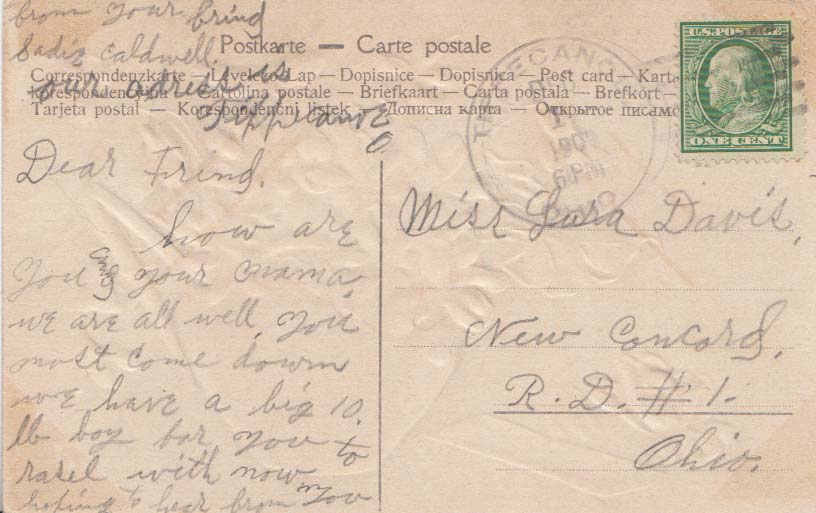 from your frind
Sadie Caldwell.
our adress is
Tippicanoe
O
Postkarte — Carte postale
Correspondenzkarte — Levelező-Lap — Dopisnice — Dopisnica — Post card — Karta
Korespondencyjna — Cartolina postale — Briefkaart — Carta postala — Brefkort —
Tarjeta postal — Korespondenčni listek — Дописна карта — Открытое письмо
U.S. POSTAGE
ONE CENT
190
6 PM
OHIO
Dear Frind.
how are
you and your mama,
we are all well, you
most come down
we have a big 10
lb boy for you to
rasel with now
hoping to hear from you
Miss Lura Davis,
New Concord,
R. D. # 1.
Ohio.